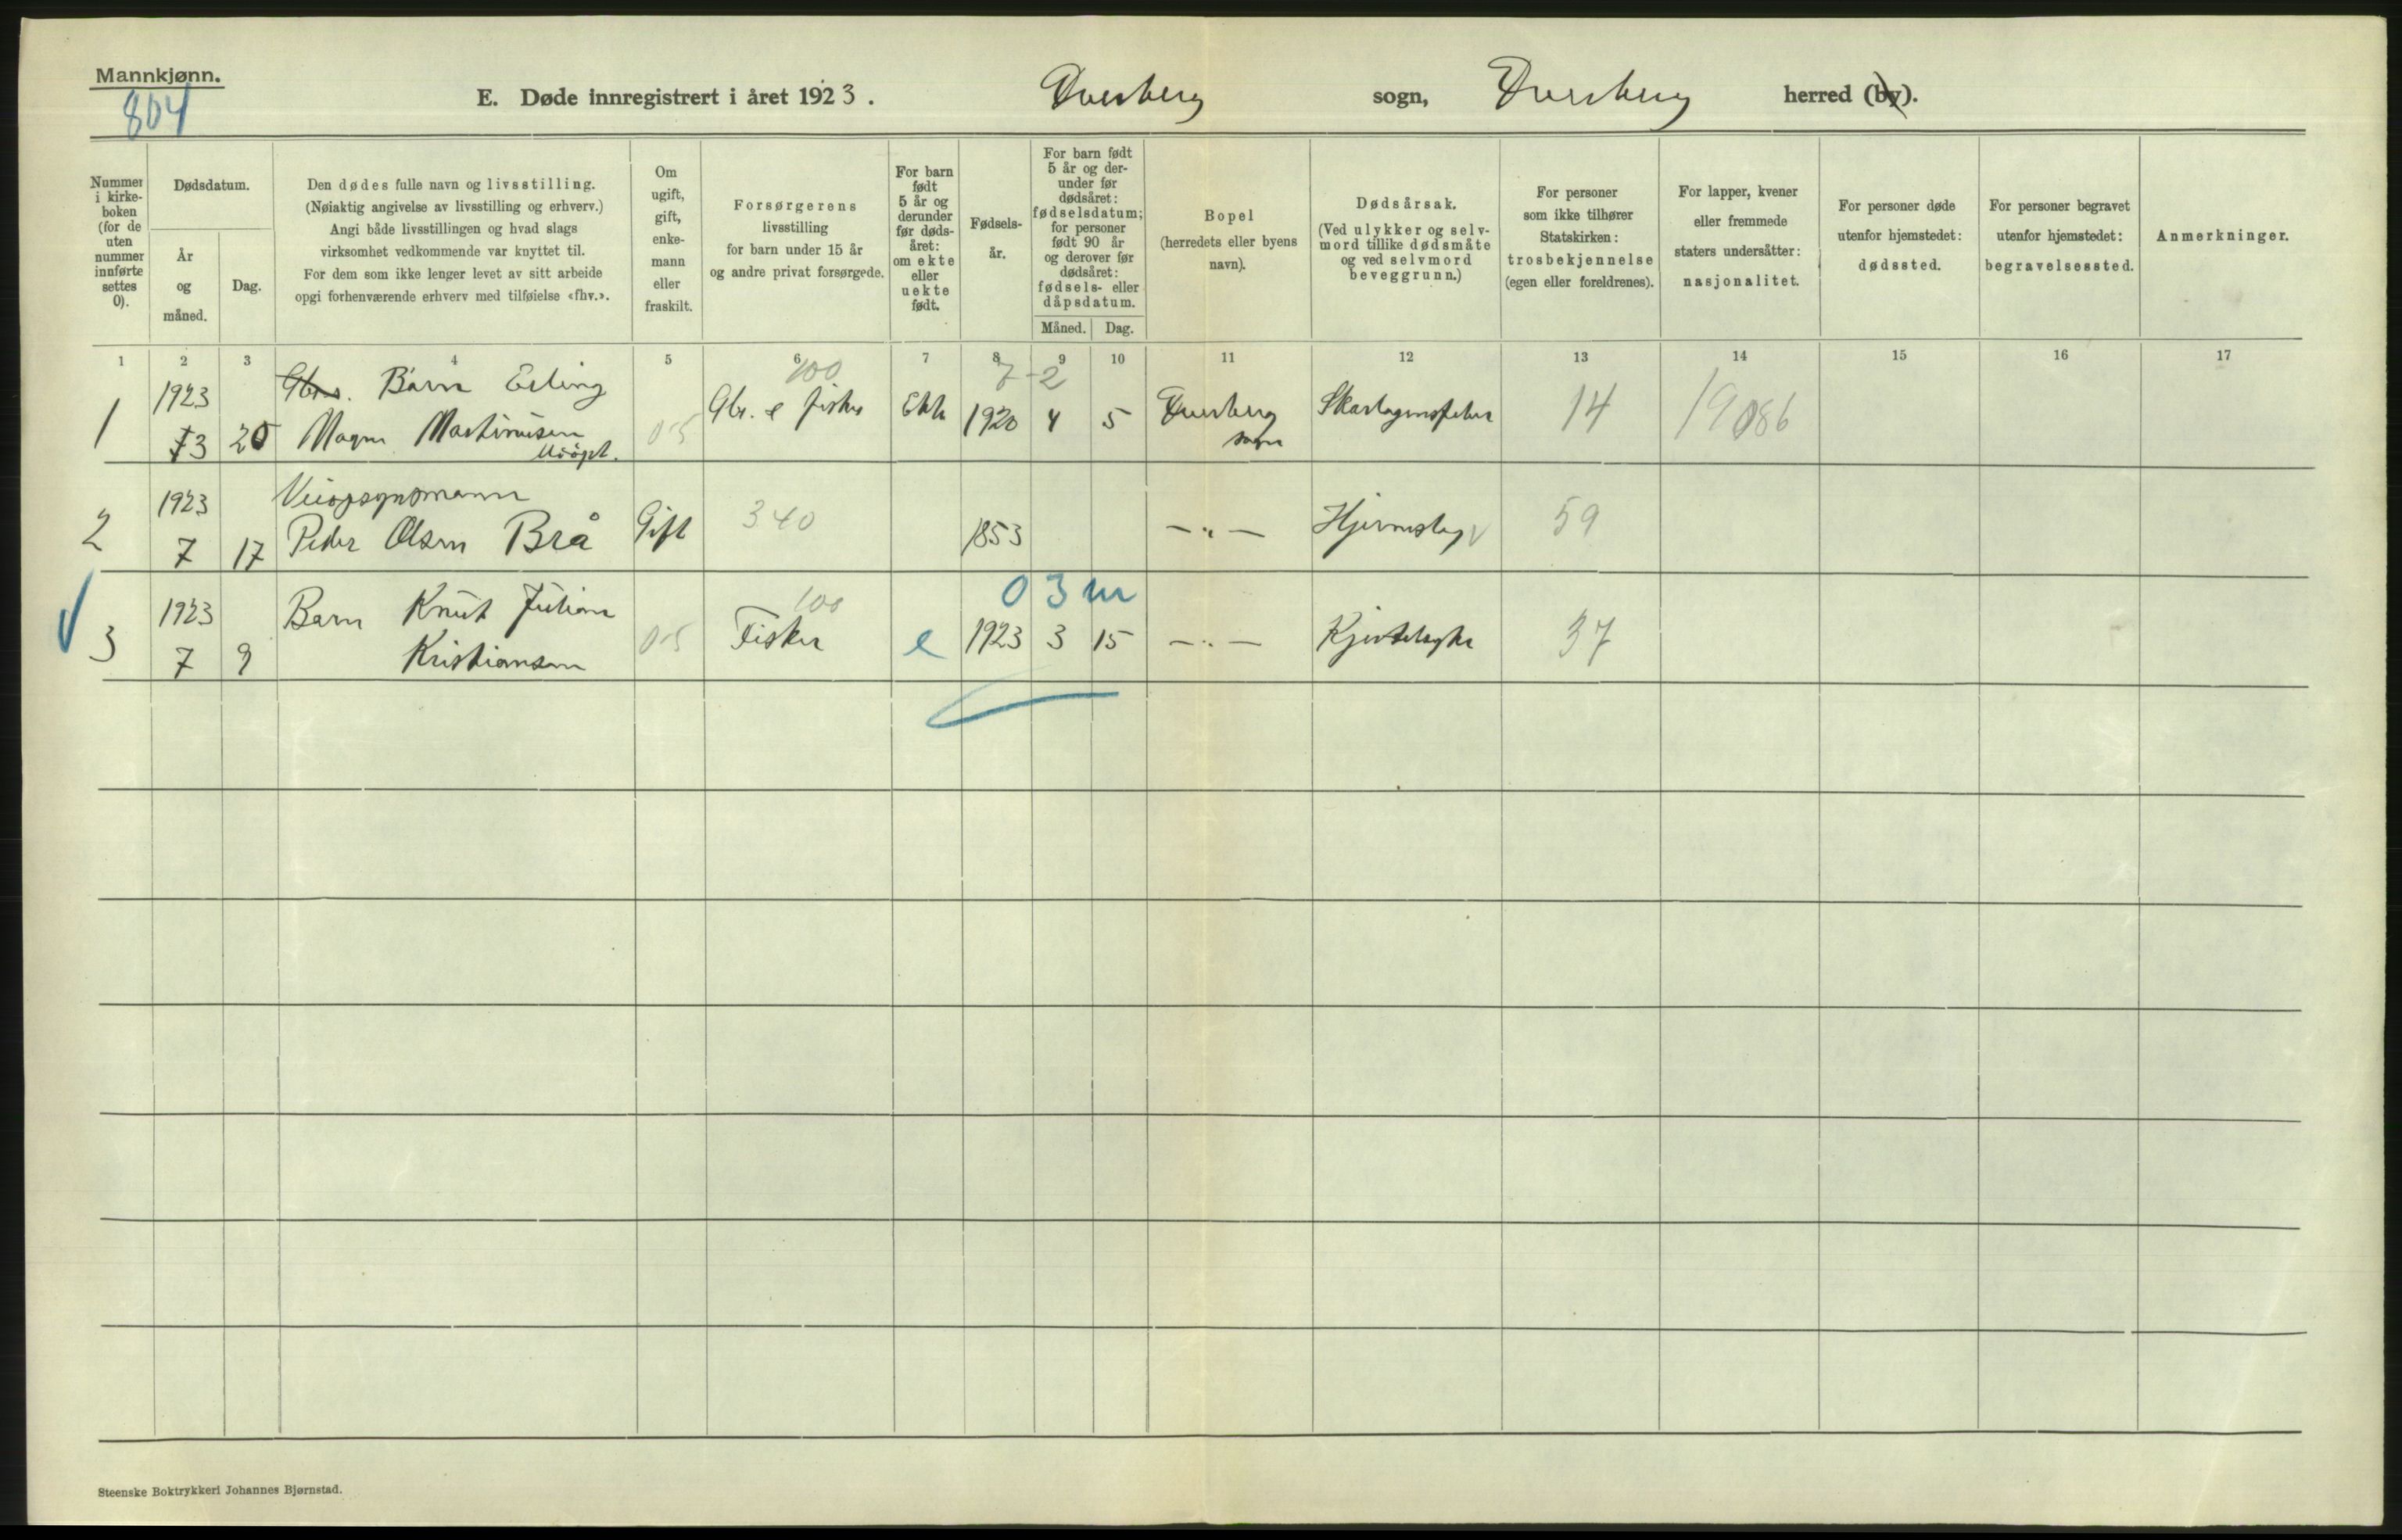 Mannkjønn.
804
E. Døde innregistrert i året 1923. Dverberg sogn, Dverberg herred (by).
Nummer i kirkeboken (for de uten nummer innførte settes 0).
Dødsdatum.
År og måned.
Dag.
Den dødes fulle navn og livsstilling.
(Nøiaktig angivelse av livsstilling og erhverv.)
Angi både livsstillingen og hvad slags
virksomhet vedkommende var knyttet til.
For dem som ikke lenger levet av sitt arbeide
opgi forhenværende erhverv med tilføielse «fhv.».
Om
ugift,
gift,
enke-
mann
eller
fraskilt.
Forsørgerens
livsstilling
for barn under 15 år
og andre privat forsørgede.
For barn
født
5 år og
derunder
før døds-
året:
om ekte
eller
uekte
født.
Fødsels-
år.
For barn født
5 år og der-
under før
dødsåret:
fødselsdatum;
for personer
født 90 år
og derover før
dødsåret:
fødsels- eller
dåpsdatum.
Måned. Dag.
Bopel
(herredets eller byens
navn).
Dødsårsak.
(Ved ulykker og selv-
mord tillike dødsmåte
og ved selvmord
beveggrunn.)
For personer
som ikke tilhører
Statskirken:
trosbekjennelse
(egen eller foreldrenes).
For lapper, kvener
eller fremmede
staters undersåtter:
nasjonalitet.
For personer døde
utenfor hjemstedet:
dødssted.
For personer begravet
utenfor hjemstedet:
begravelsessted.
Anmerkninger.
1 2 3 4 5 6 7 8 9 10 11 12 13 14 15 16 17
1923 Barn Erling 100 7-2
1 3 20 Magn Martinusen 0-5 Gbr. & fisker Ekte 1920 4 5 Dverberg Skarlagensfeber 14 19086
sogn
1923 Veiopsynsmann
2 7 17 Peder Olsen Brå Gift 340 1853 —"— Hjerneslag 59
1923 Barn Knut Julian 100 0 3 m
3 7 9 Kristiansen 0-5 Fisker e 1923 3 15 —"— Kjertelsyke 37
Steenske Boktrykkeri Johannes Bjørnstad.